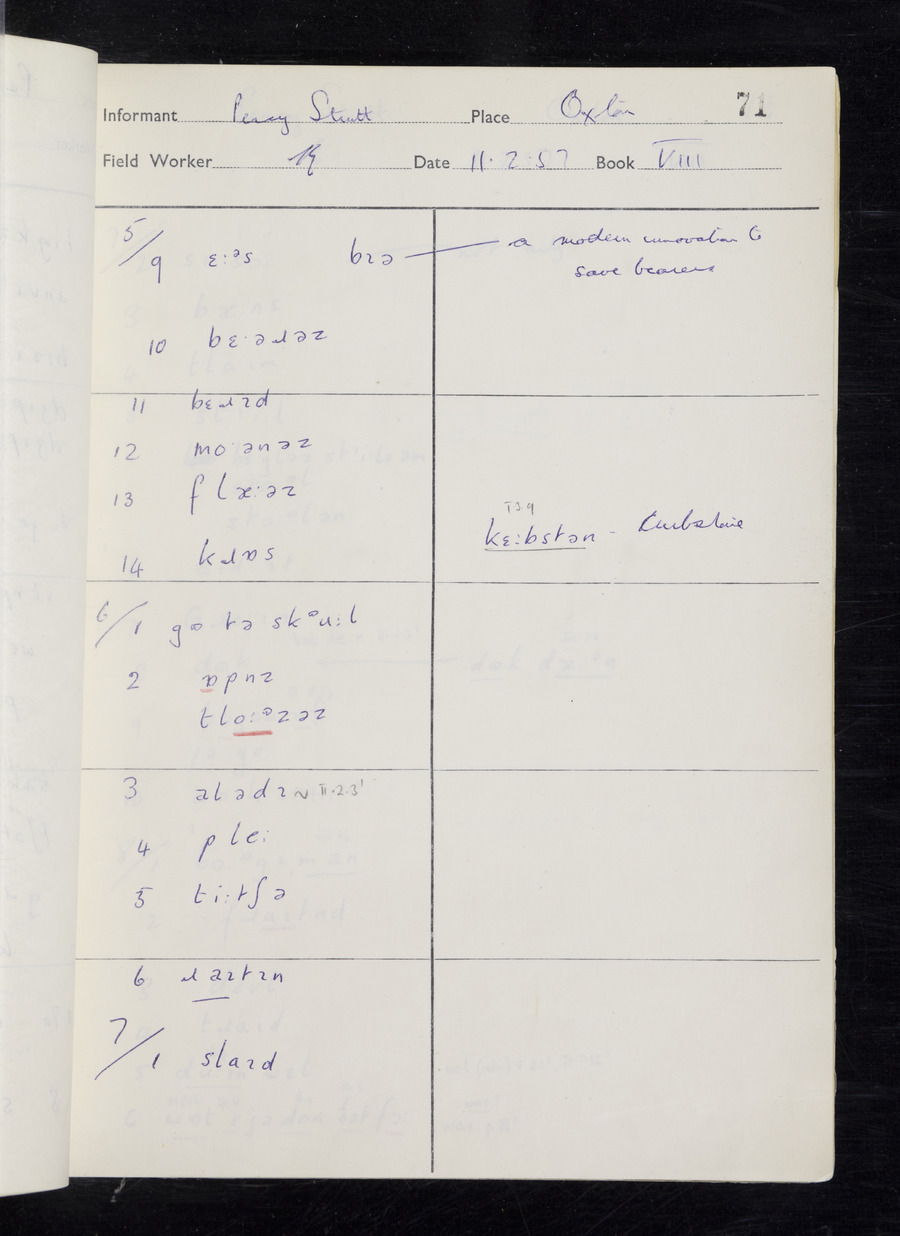 Informant Percy Strutt Place Oxton 71
Field Worker Date 11·2·57 Book VIII
5/9 ɛ:ᵊs bɪə — a modern innovation to
save bearers
10 bɛ·əɹəz
11 bɛɹɪd
12 mɔ·ənəz
13 flæ:əz
I 3 9
14 kɹɒs kɛ:bstən - Kurbstone
6/1 gɒ tə skᵊu:l
2 ɒpnz
tlo:ᵊzəz
3 alədɪ ~ II·2·3'
4 ple:
5 ti:tʃə
6 ɹaɪtɪn
7/1 slaɪd